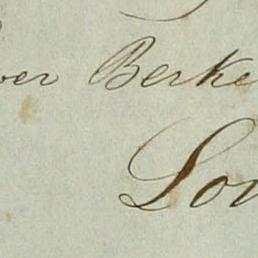 ver Berke
Lon